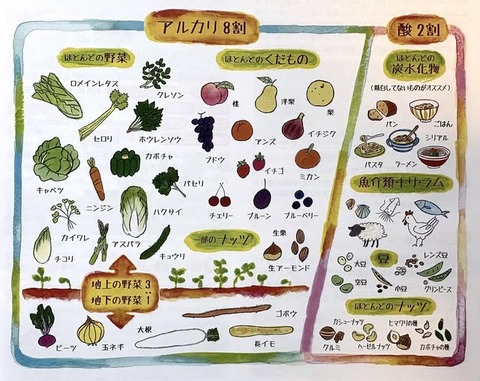 アルカリ8割
ほとんどの野菜
ロメインレタス
クレソン
セロリ
ホウレンソウ
カボチャ
キャベツ
ニンジン
パセリ
ハクサイ
カイワレ
アスパラ
チコリ
キュウリ
ほとんどのくだもの
桃
洋梨
梨
ブドウ
アンズ
イチジク
イチゴ
ミカン
チェリー
プルーン
ブルーベリー
一部のナッツ
生栗
生アーモンド
地上の野菜3
地下の野菜1
ゴボウ
ビーツ
玉ネギ
大根
長イモ
酸2割
ほとんどの
炭水化物
(精白してないものがオススメ)
パン
ごはん
シリアル
パスタ
ラーメン
魚介類・トリ・ラム
豆
大豆
レンズ豆
空豆
小豆
グリンピース
ほとんどのナッツ
カシューナッツ
ヒマワリの種
クルミ
ヘーゼルナッツ
カボチャの種